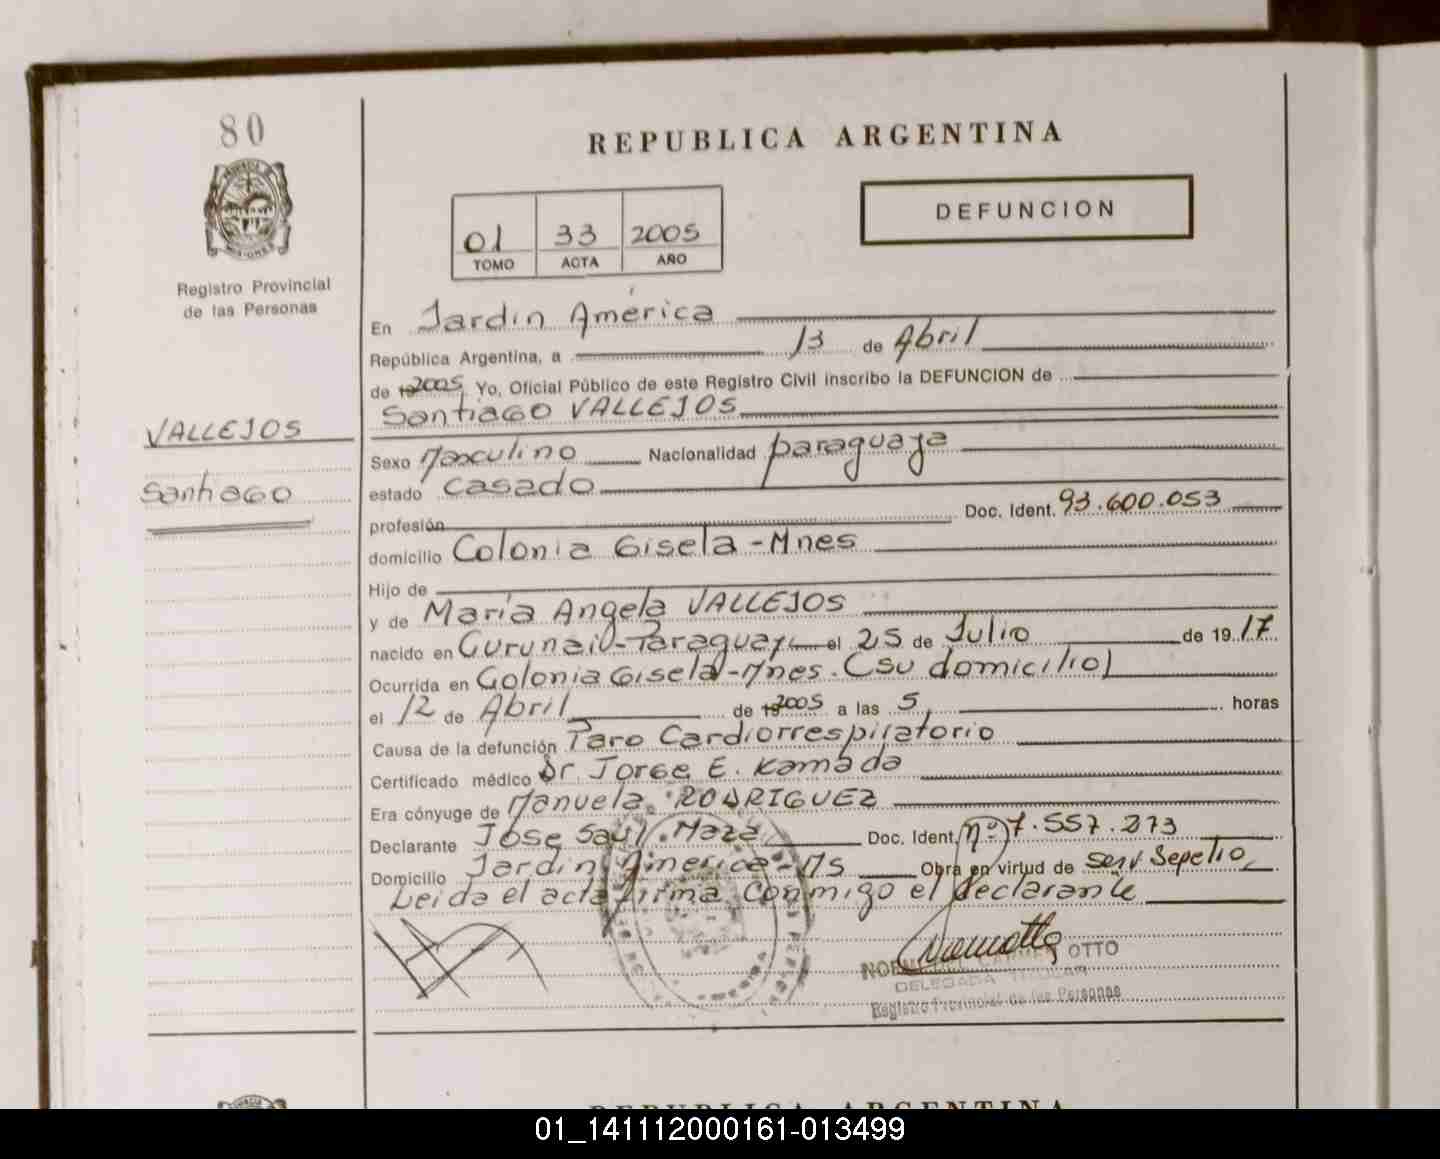 80
REPUBLICA ARGENTINA
DEFUNCION
01 33 2005
TOMO ACTA AÑO
Registro Provincial
de las Personas
En Jardín América
República Argentina, a 13 de Abril
de 2005 Yo, Oficial Público de este Registro Civil inscribo la DEFUNCION de
Santiago VALLEJOS
VALLEJOS
Santiago
Sexo Masculino Nacionalidad paraguaya
estado casado
profesión Doc. Ident. 93.600.053
domicilio Colonia Gisela - Mnes
Hijo de
y de María Angela VALLEJOS
nacido en - Paraguay el 25 de Julio de 1917
Ocurrida en Colonia Gisela - Mnes. (su domicilio)
el 12 de Abril de 2005 a las 5 horas
Causa de la defunción Paro Cardiorrespiratorio
Certificado médico Dr Jorge E. Kamada
Era cónyuge de Manuela RODRIGUEZ
Declarante José Saul Maza Doc. Ident. nº 7.557.273
Domicilio Jardín América - Ms Obra en virtud de serv Sepelio
Leida el acta firma conmigo el declarante
OTTO
DELEGADA TITULAR
Registro Provincial de las Personas
REPUBLICA ARGENTINA
01_141112000161-013499